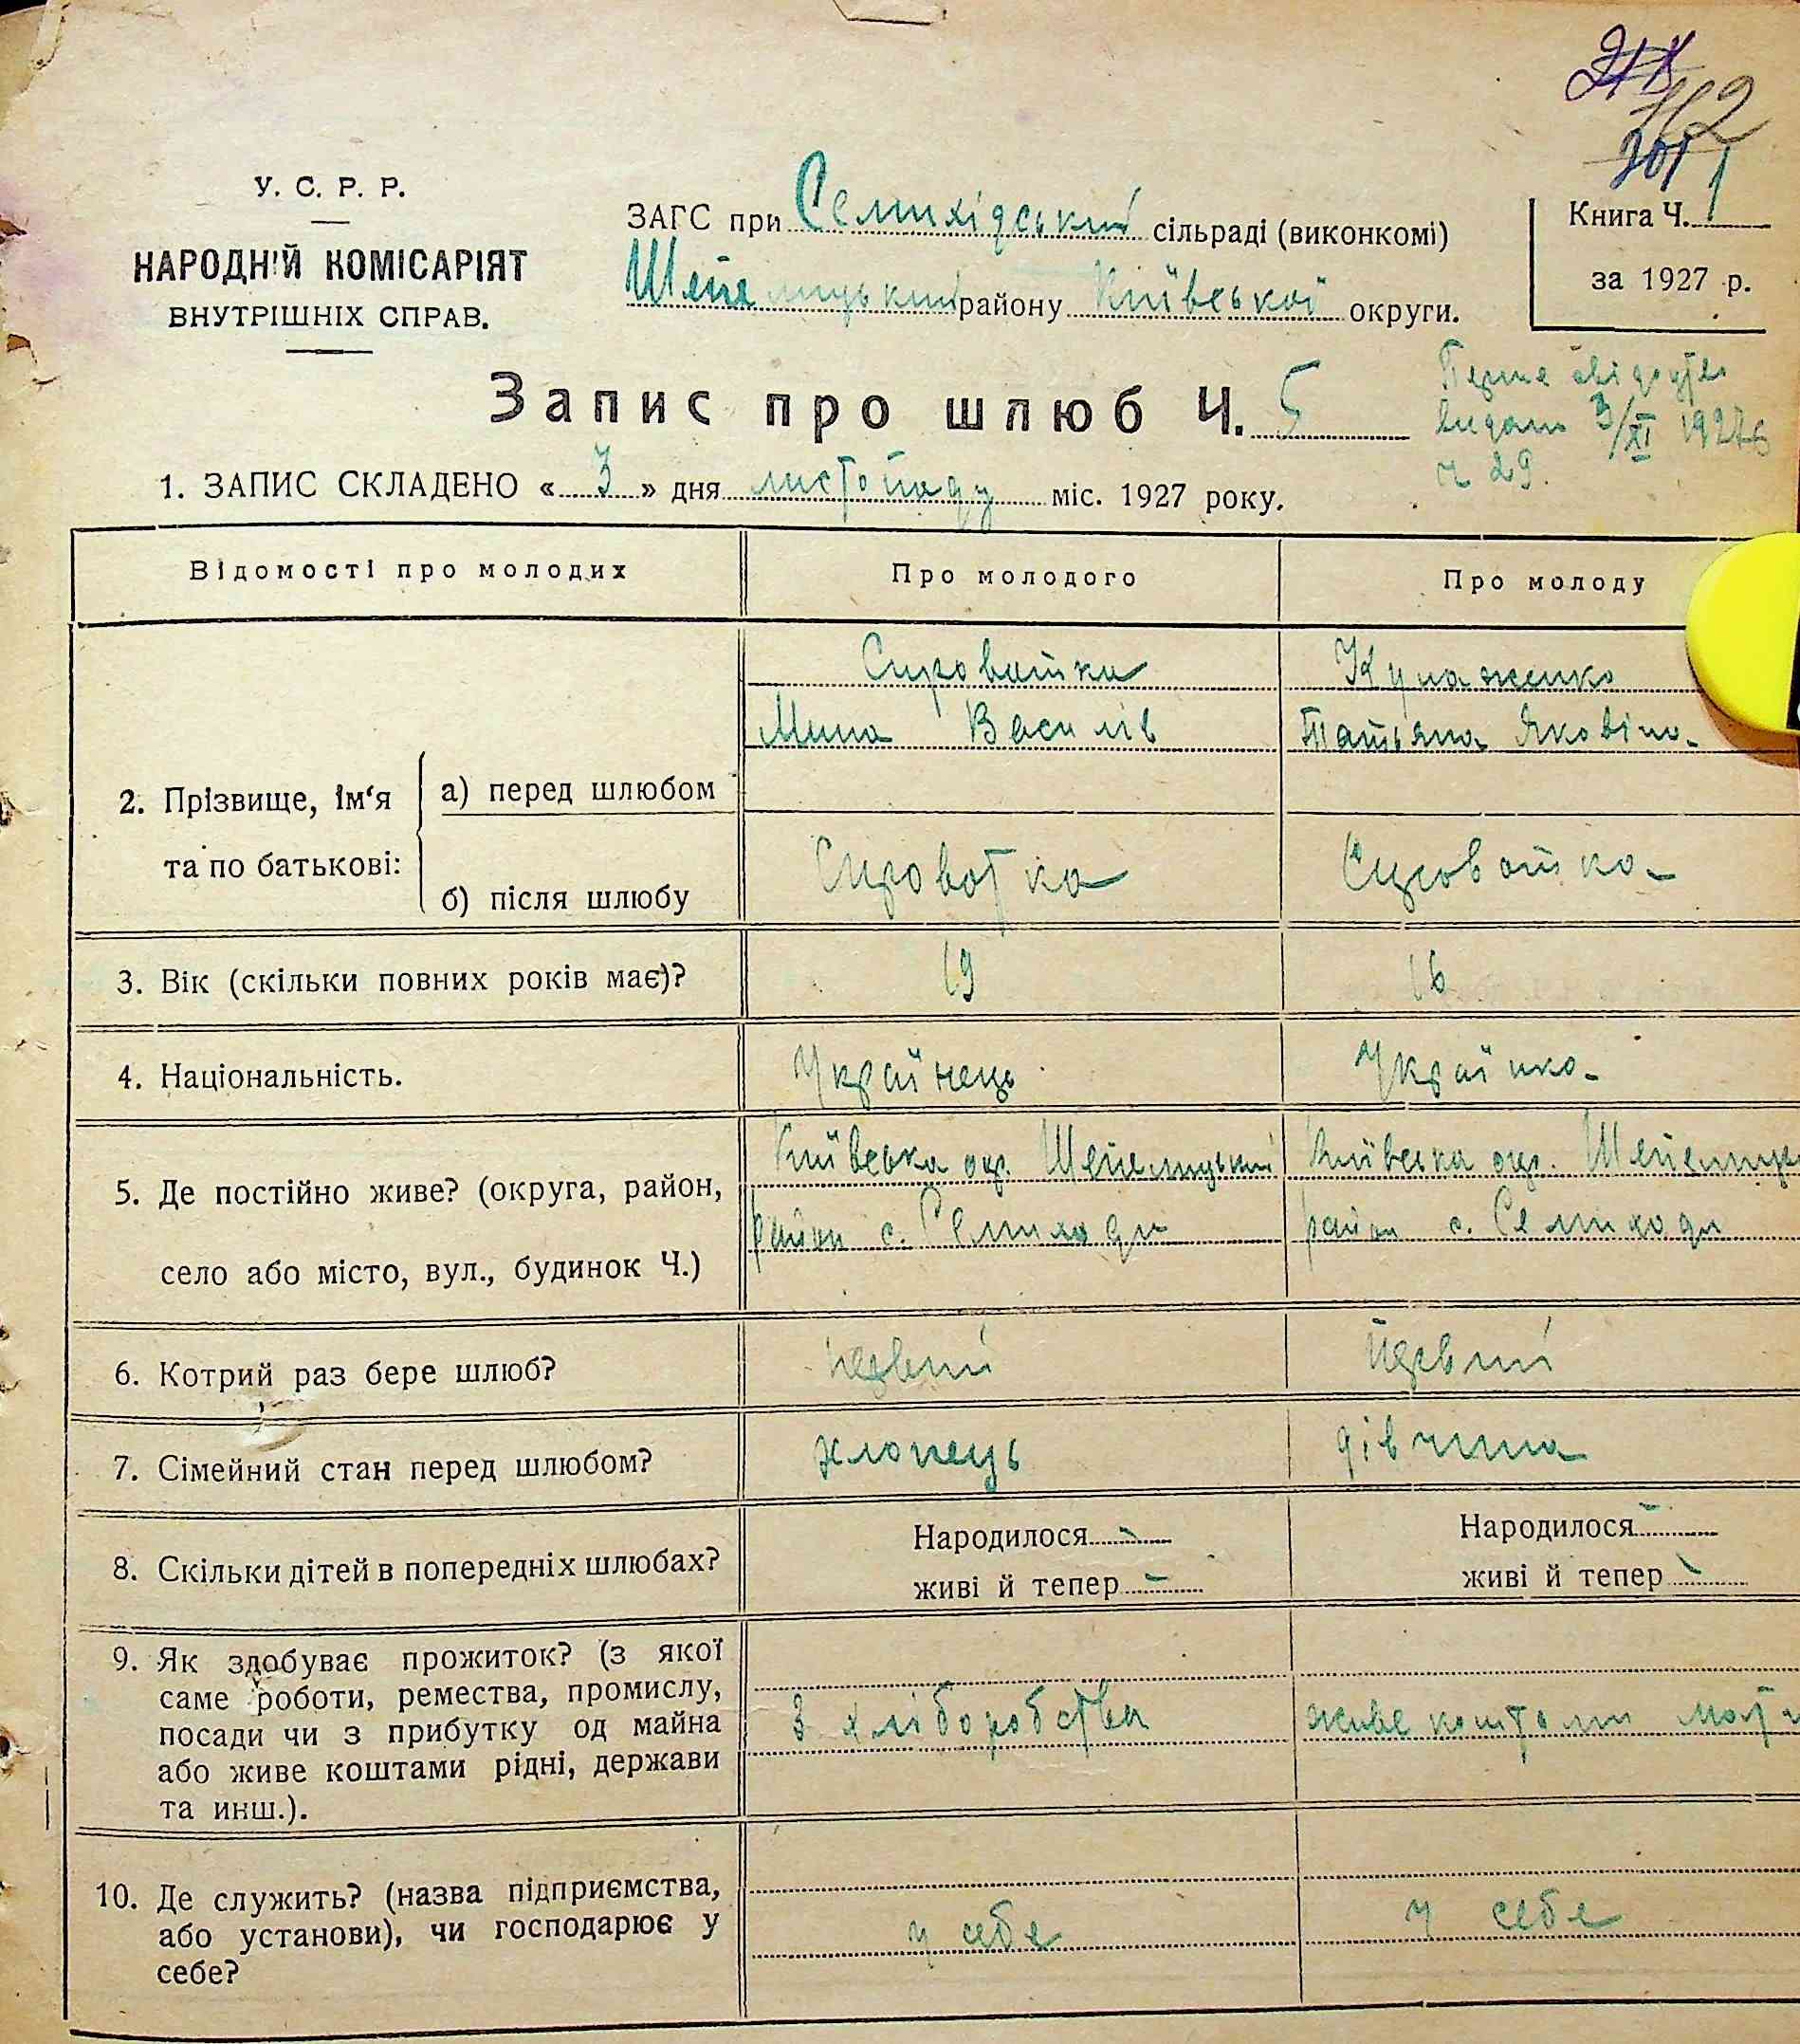 112
У. С. Р. Р.
НАРОДНІЙ КОМІСАРІЯТ
ВНУТРІШНІХ СПРАВ.
ЗАГС при Семихідський сільраді (виконкомі)
Шепелицький району Київської округи.
Книга Ч. 1
за 1927 р.
Запис про шлюб Ч. 5
видано 3/XI 1927 р
ч 29.
1. ЗАПИС СКЛАДЕНО « 3 » дня листопаду міс. 1927 року.
Відомості про молодих
Про молодого
Про молоду
2. Прізвище, ім‘я та по батькові:
а) перед шлюбом
Сироватка
Мина Василів
Кулаженко
Татьяна Яковівна
б) після шлюбу
Сироватка
Сироватка
3. Вік (скільки повних років має)?
19
16
4. Національність.
Українець
Українка
5. Де постійно живе? (округа, район,
село або місто, вул., будинок Ч.)
Київська окр. Шепелицький
район с. Семиходи
Київська окр. Шепелицьк
район с. Семиходи
6. Котрий раз бере шлюб?
первий
первий
7. Сімейний стан перед шлюбом?
хлопець
дівчина
8. Скільки дітей в попередніх шлюбах?
Народилося -
живі й тепер -
Народилося -
живі й тепер -
9. Як здобуває прожиток? (з якої
саме роботи, ремества, промислу,
посади чи з прибутку од майна
або живе коштами рідні, держави
та инш.).
З хліборобства
живе коштами мат
10. Де служить? (назва підприємства,
або установи), чи господарює у
себе?
у себе
у себе